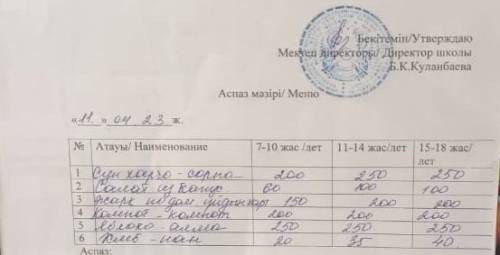 Бекітемін/Утверждаю
Мекуеп директоры/ Директор школы
Б.К.Куланбаева
Аспаз мәзірі/ Меню
«11.» 04 23 ж.
№ Атауы/ Наименование 7-10 жас /лет 11-14 жас/ лет 15-18 жас/ лет
1 Суп харчо - сорпа 200 250 250
2 Салат из 60 100 100
3 Жарк по дом. 150 200 200
4 Компот - компот 200 200 200
5 Яблоко - алма 250 250 250
6 Хлеб - нан 20 35 40
Аспаз: